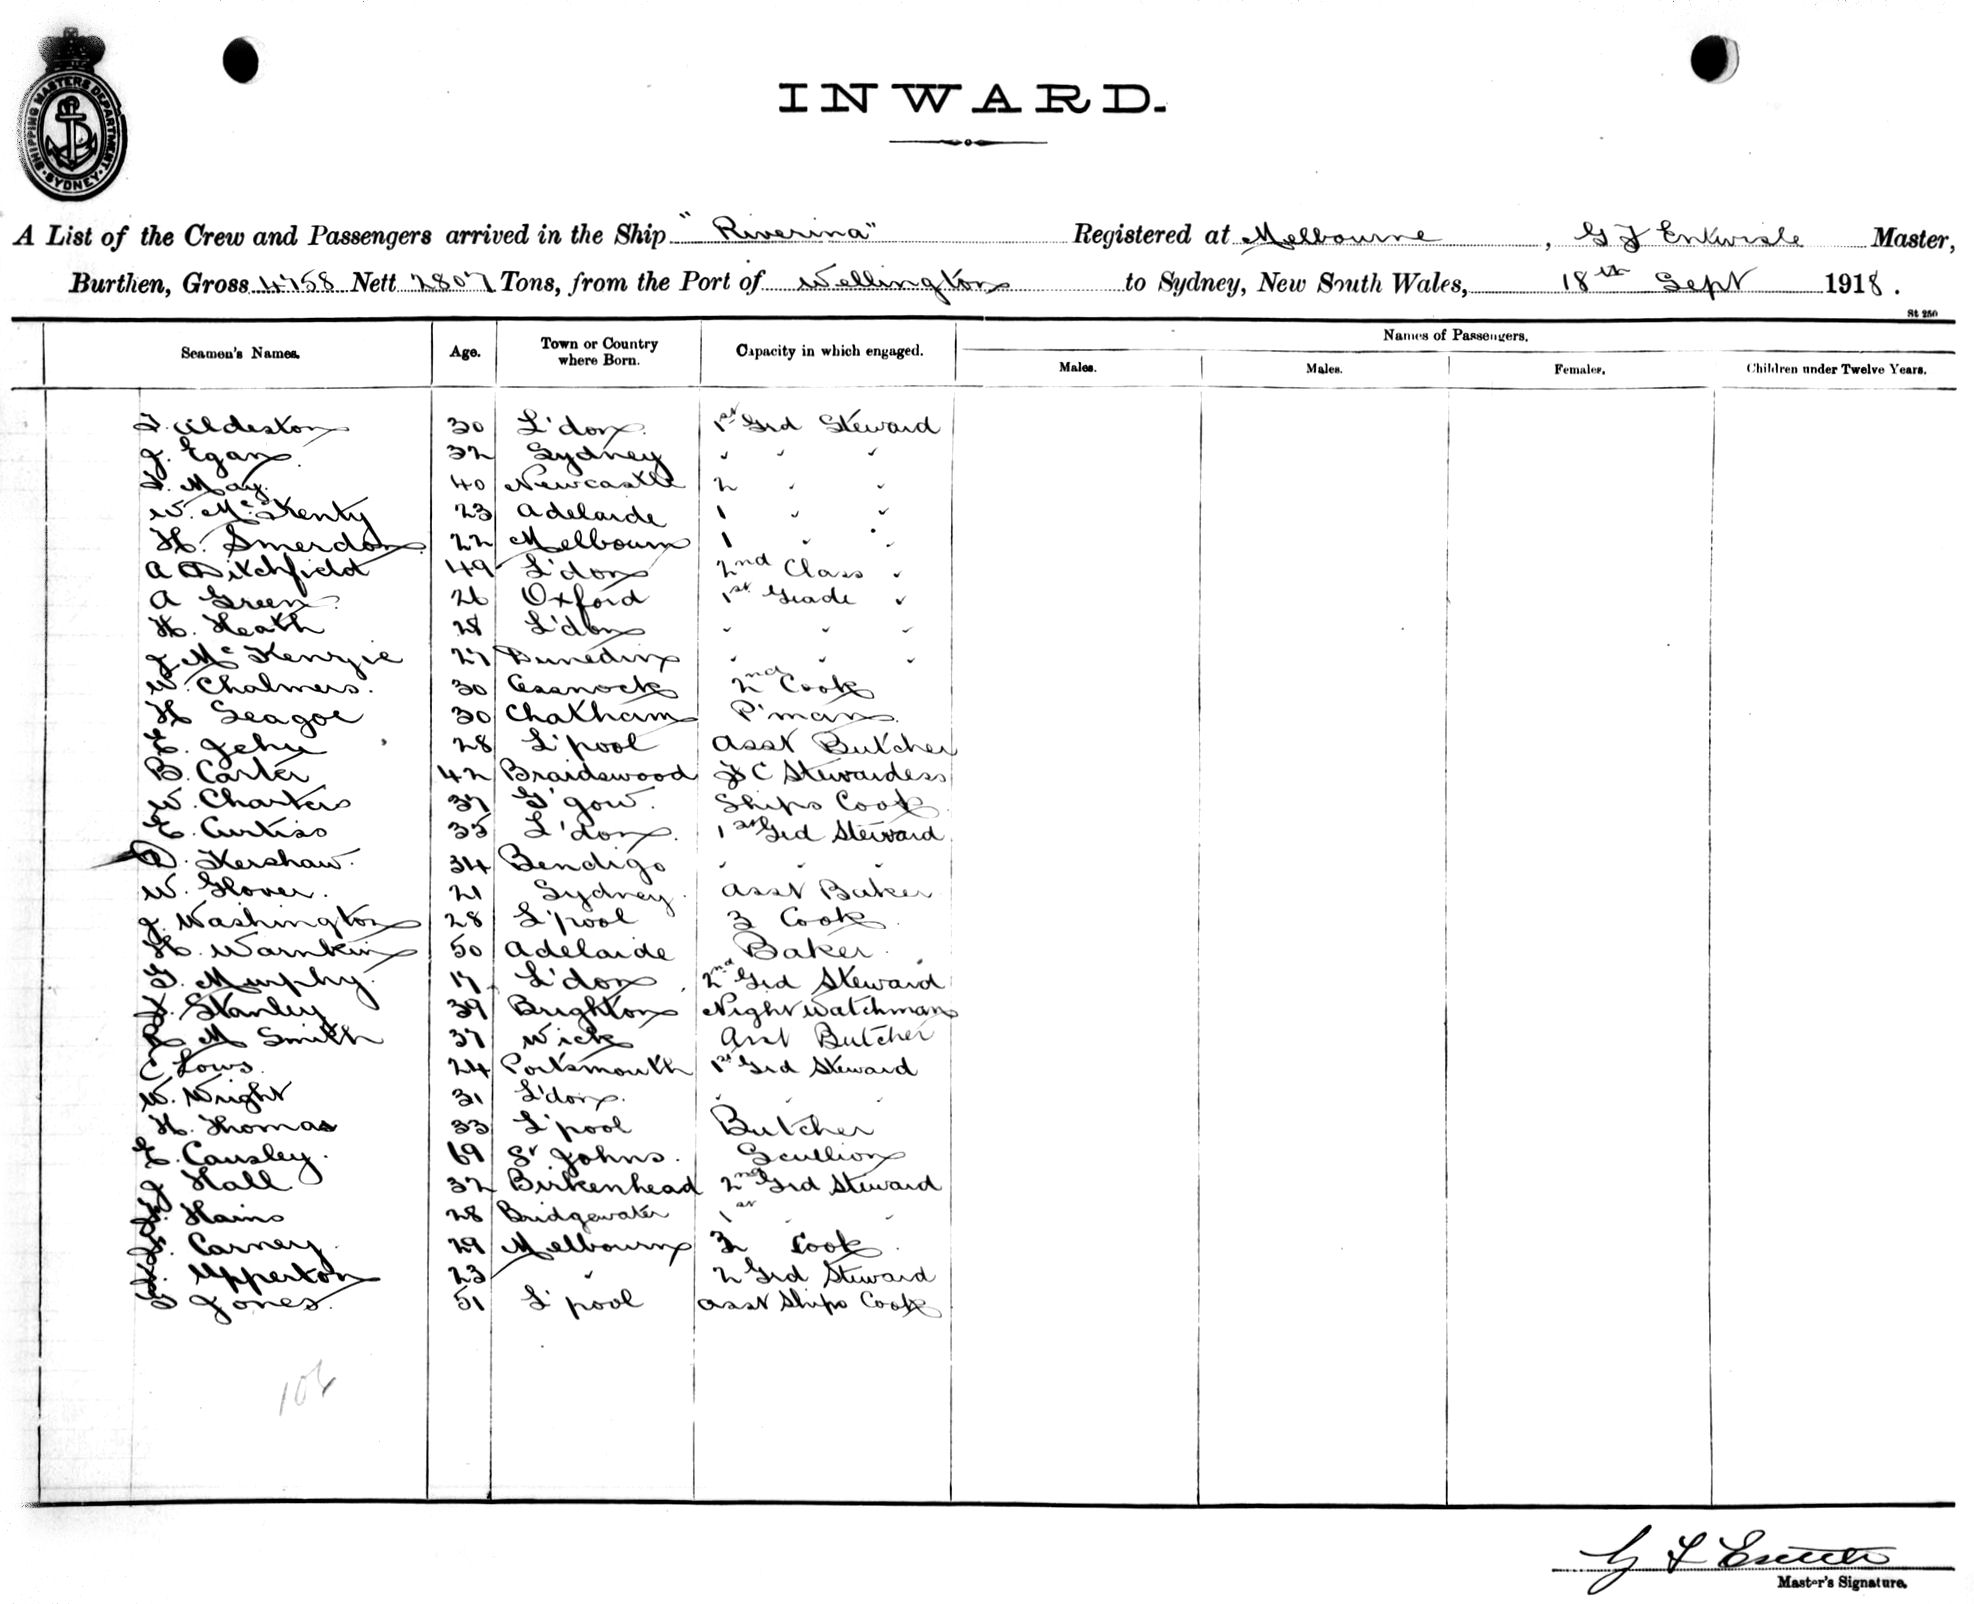 SHIPPING MASTERS DEPARTMENT
SYDNEY
INWARD.
A List of the Crew and Passengers arrived in the Ship "Riverina" Registered at Melbourne, G F Entwisle Master,
Burthen, Gross 4758 Nett 2807 Tons, from the Port of Wellington to Sydney, New South Wales, 18th Sept 1918.
St 250
Seamen's Names. Age. Town or Country where Born. Capacity in which engaged. Names of Passengers.
Males. Males. Females. Children under Twelve Years.
30 L'don. 1st Grd Steward
J. Egan 32 Sydney " " "
May. 40 Newcastle 2 " "
W. McKenty 23 Adelaide 1 " "
H. Smerdon 22 Melbourn 1 " "
A Ditchfield 49 L'don 2nd Class "
A Green 26 Oxford 1st Grade "
H. Heath 28 L'don " " "
J. McKenzie 27 Dunedin " " "
W. Chalmers. 30 Cessnock 2nd Cook
H Seagoe 30 Chatham P'man
E. Jehu 28 L'pool Asst Butcher
B. Carter 42 Braidswood Stewardess
W. Charters 37 G'gow. Ships Cook
E. Curtiss 35 L'don. 1st Grd Steward
Kershaw. 34 Bendigo " " "
W. Glover. 21 Sydney. Asst Baker
J. Washington 28 L'pool 3 Cook
H. Warnkin 50 Adelaide Baker
G. Murphy. 17 L'don 2nd Grd Steward
Stanley 39 Brighton Night Watchman
R M Smith 37 Wick Asst Butcher
C Lows. 24 Portsmouth 1st Grd Steward
W. Wright 31 L'don. " " "
H. Thomas 33 L'pool Butcher
E. Causley. 69 St Johns. Scullion
J Hall 32 Birkenhead 2nd Grd Steward
Hains 28 Bridgewater 1st " "
Carney. 29 Melbourn Cook
Upperton 23 " 2 Grd Steward
Jones. 51 L'pool Asst Ships Cook
106
Master's Signature.